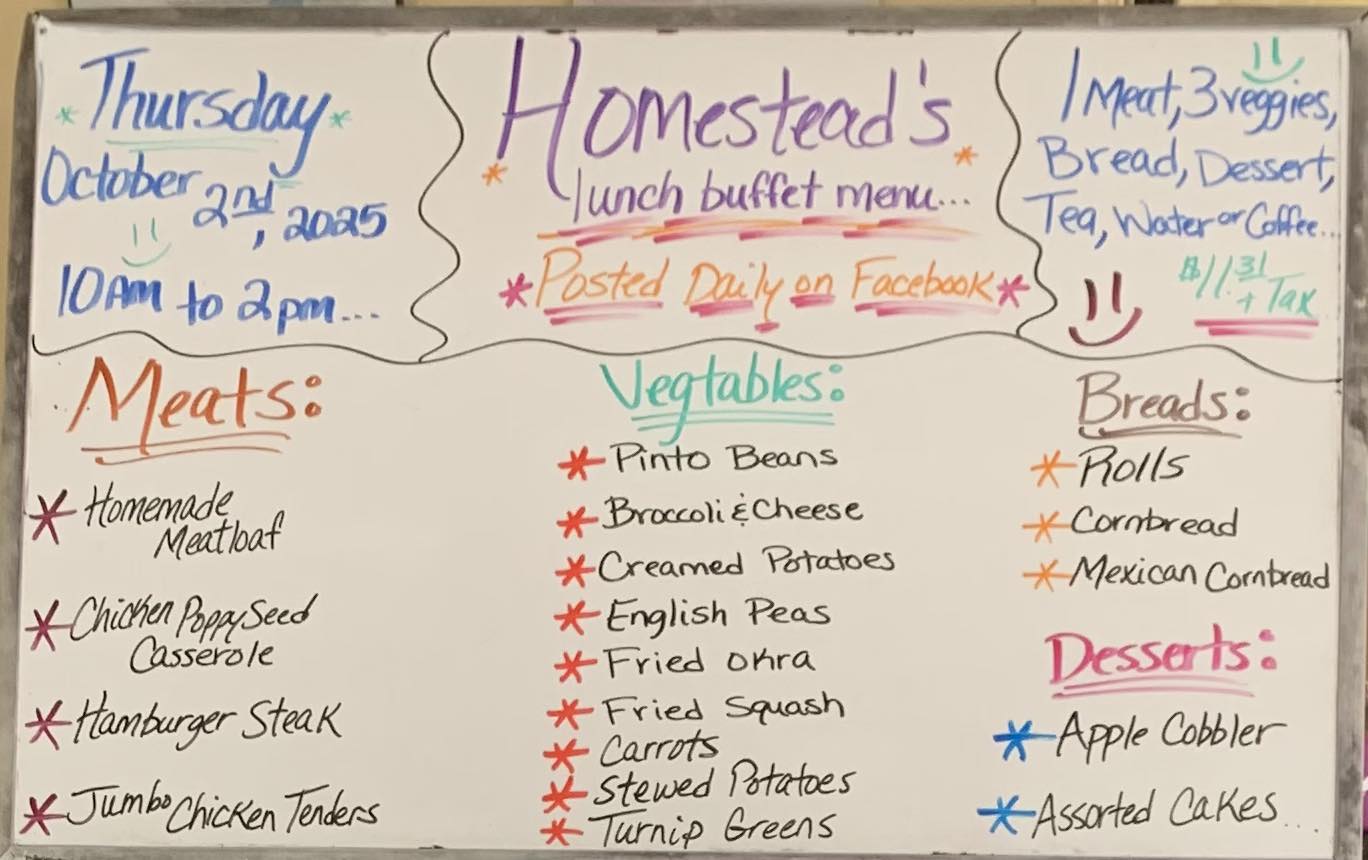 Thursday
October 2nd, 2025
10Am to 2pm...
Homestead's
lunch buffet menu...
*Posted Daily on Facebook*
1 Meat, 3 veggies,
Bread, Dessert,
Tea, Water or Coffee...
$11.31
+ Tax
Meats:
* Homemade
Meatloaf
* Chicken Poppy Seed
Casserole
* Hamburger Steak
* Jumbo Chicken Tenders
Vegtables:
* Pinto Beans
* Broccoli & Cheese
* Creamed Potatoes
* English Peas
* Fried Okra
* Fried Squash
* Carrots
* Stewed Potatoes
* Turnip Greens
Breads:
* Rolls
* Cornbread
* Mexican Cornbread
Desserts:
* Apple Cobbler
* Assorted Cakes...